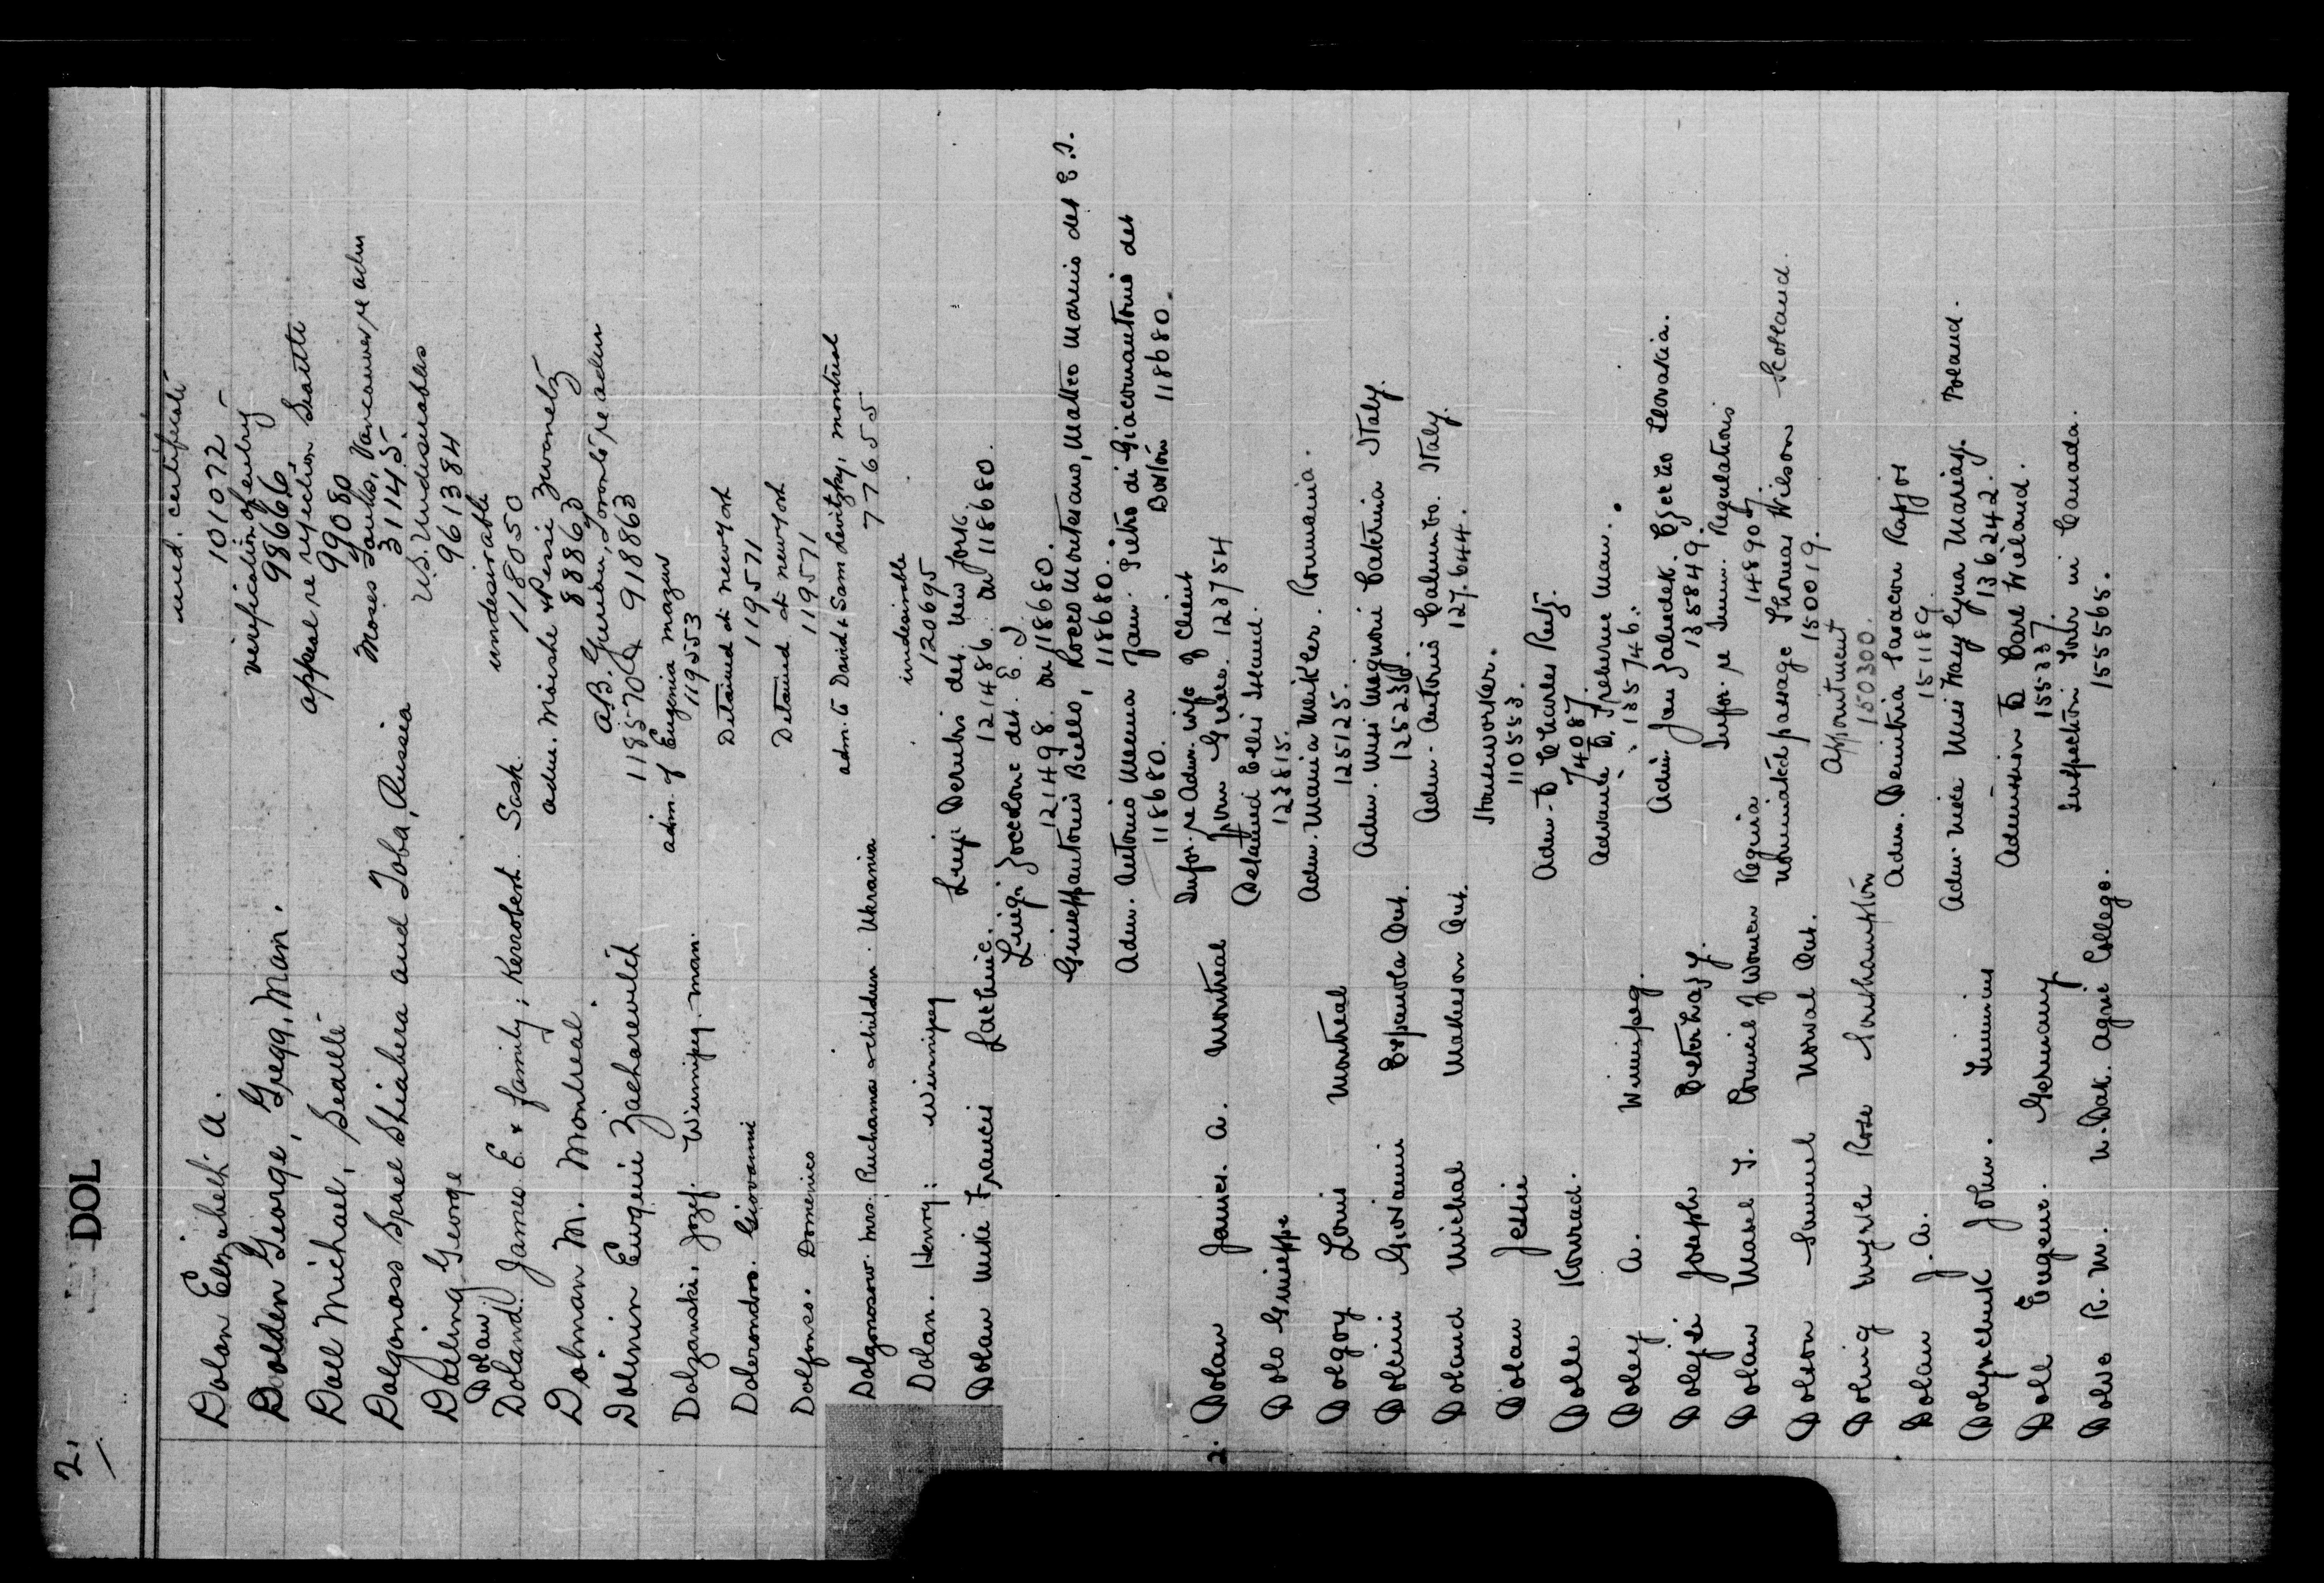 2.
DOL
Dolan Elizabeth A. med. certificate
101072 -
Dolden George, Gregg, Man. verification of entry
98666
Doll Michael, Seattle appeal re rejection Seattle
99080
Dolgonoss Israel Shiahera and Toba, Russia Moses Vancouver re adm
31145
Dolling George U.S. Undesirables
961384
Dolan
Doland James E. & family; Kerrobert Sask. undesirable
118050
Dolman M. Montreal. adm. Moishe & Pessi Zwonetz
88863
Dolinin Eugenie Zacharevitch A.B. Toronto re adm
918863
Dolzanski, Jozef. Winnipeg. man. adm. of Eugenia Mazur
119553
Dolerondro. Giovanni Detained at new york
119571
Dolfonso. Domenico Detained at new york
119571
Dolgonosow. mrs. Ruchama & children. Ukrania adm. to David & Sam Levitzky, montreal
77655
Dolan. Henry: Winnipeg undesirable
120695
Dolan Mike Francis Lachine. Luigi Derubi det. New York.
121486 on 118680.
Luigi Zoccolone det. E. I.
121498. on 118680.
Giuseppantonio Biello, Rocco Montesano, Matteo Marinis det E.I.
118680.
Adm. Antonio Menna Jann. Pietro di Giacomantonio det
118680. Boston 118680.
2. Dolan James. A. Montreal Infor. re Adm. wife of Client
from Greece. 123754
Dolo Giuseppe Detained Ellis Island.
123815.
Dolgoy Louis Montreal Adm. Maria Meikler. Roumania.
125125.
Dolcini Giovanni Espanola Ont. Adm. Miss Magnoni Caterina Italy.
125236.
Doland Michal Matheson Ont. Adm. Antonio Columbo. Italy.
127.644.
Dolan Jessie Houseworker.
110553.
Dolle Konrad. Adm. to Charles Reitz.
74087
Doley A. Winnipeg. Advance to Treherne Man.
135746.
Dolejsi Joseph Esterhazy. Adm Jan Zaludek. Czecho Slovakia.
135849.
Dolan Mabel T. Council of Women Regina Infor. re Imm. Regulations
148907.
Dolson Samuel Norval Ont. nominated passage Thomas Wilson Scotland.
150019.
Doling Myrtle Rose Southampton Appointment
150300.
Dolan J. A. Adm. Demitria
151189
Dolynchuk John. Adm. niece Miss Mary Marriage Poland.
136242.
Doll Eugene. Germany Admission to Carl Wieland.
155337.
Dolve R. M. N. Dak. Agric College. Inspection Tour in Canada.
155565.